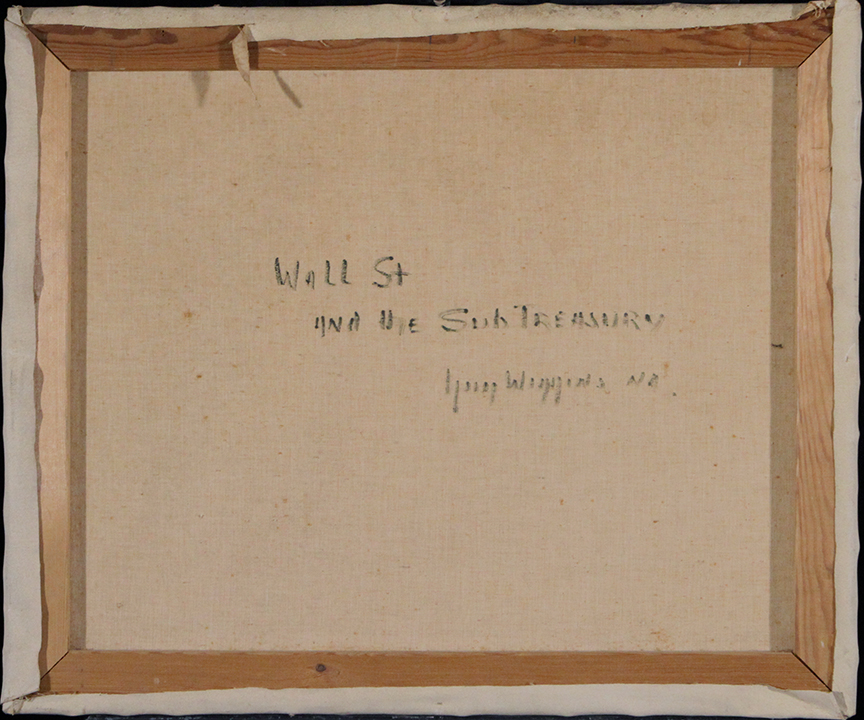 Wall St
and the SubTreasury
Guy Wiggins NA.